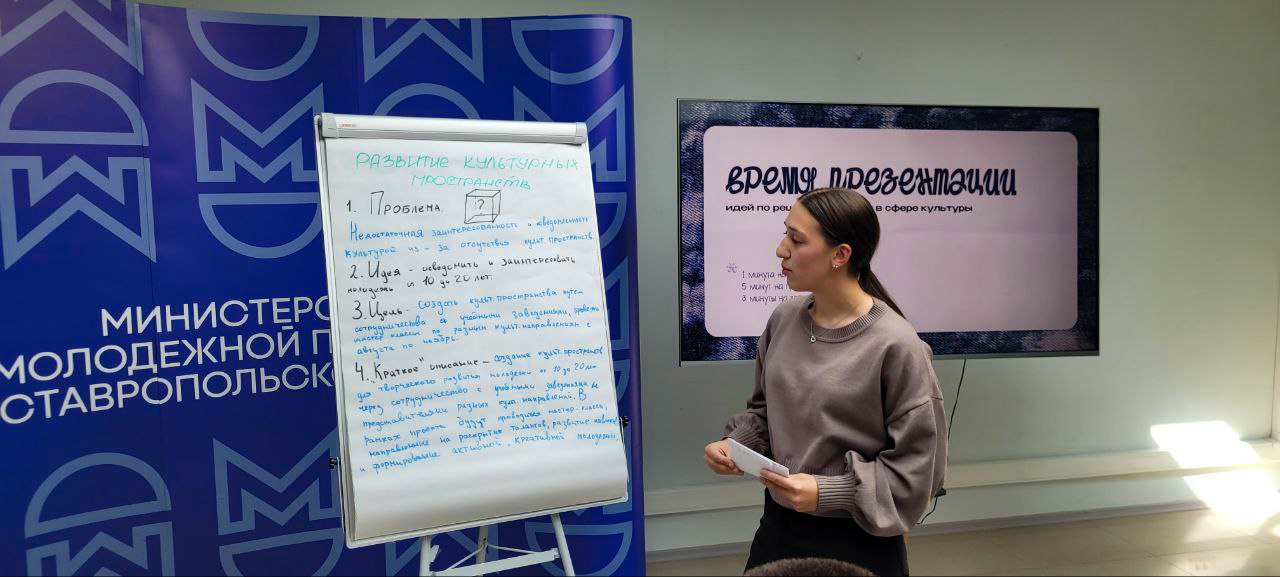 МИНИСТЕРС
МОЛОДЕЖНОЙ П
СТАВРОПОЛЬСК
РАЗВИТИЕ КУЛЬТУРНЫХ
ПРОСТРАНСТВ
1. ПРОБЛЕМА ?
Недостаточная заинтересованность и осведомленность
культурой из-за отсутствия культ. пространств.
2. Идея - осведомить и заинтересовать
молодежь от 10 до 20 лет.
3. Цель - создать культ. пространства путем
сотрудничества с учебными заведениями, провести
мастер классы по разным культ. направлениям с
августа по ноябрь.
4. "Краткое" описание - создание культ. пространств
для творческого развития молодежи от 10 до 20 лет
через сотрудничество с учебными заведениями и
представителями разных культ. направлений. В
рамках проекта будут проводиться мастер-классы,
направленные на раскрытие талантов, развитие навыков
и формирование активной, креативной молодежи.
ВРЕМЯ ПРЕЗЕНТАЦИИ
идей по реш в сфере культуры
1 минута на
5 минут на п
3 минуты на